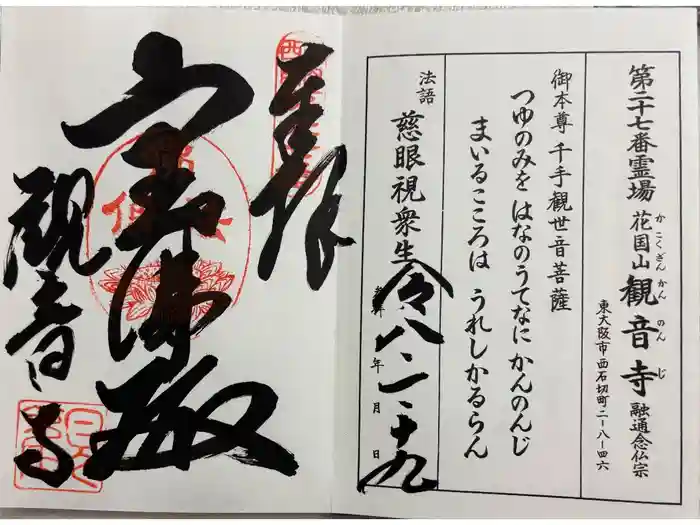 第二十七番霊場 花国山 観音寺 融通念仏宗
かこくざん かんのんじ
東大阪市西石切町二－八－四六
御本尊 千手観世音菩薩
つゆのみを はなのうてなに かんのんじ
まいるこころは うれしかるらん
法語 慈眼視衆生
令八
年 月 日
奉拝
宝佛殿
観音寺